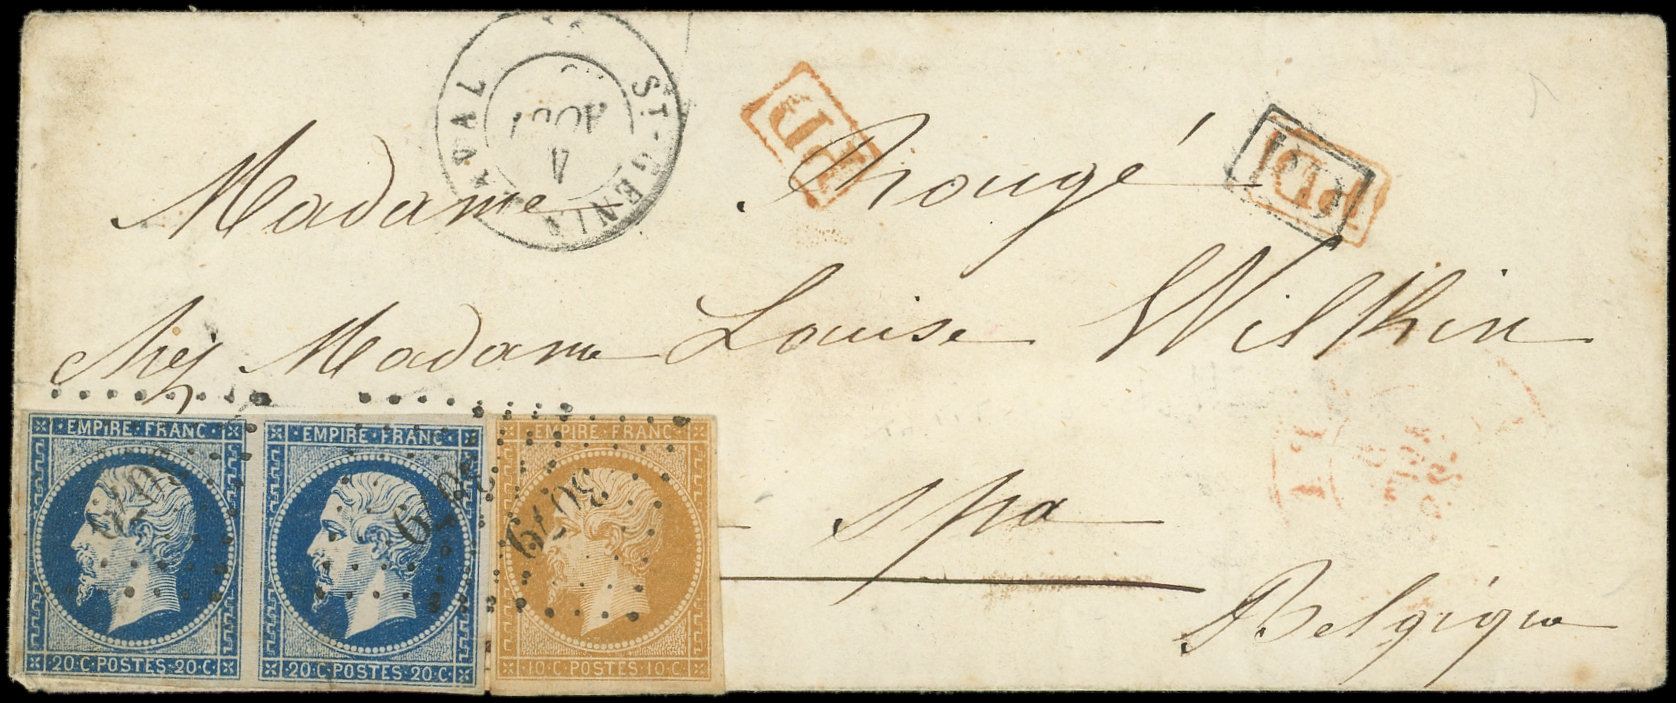 ST-GENIX
VAL
4
AOUT
PD
PD
Madame Rougé
chez Madame Louise Wilkin
spa
Belgique
EMPIRE FRANC
EMPIRE FRANC
EMPIRE FRANC
3079
3079
3079
20·C·POSTES·20·C
20·C·POSTES·20·C
10·C·POSTES·10·C